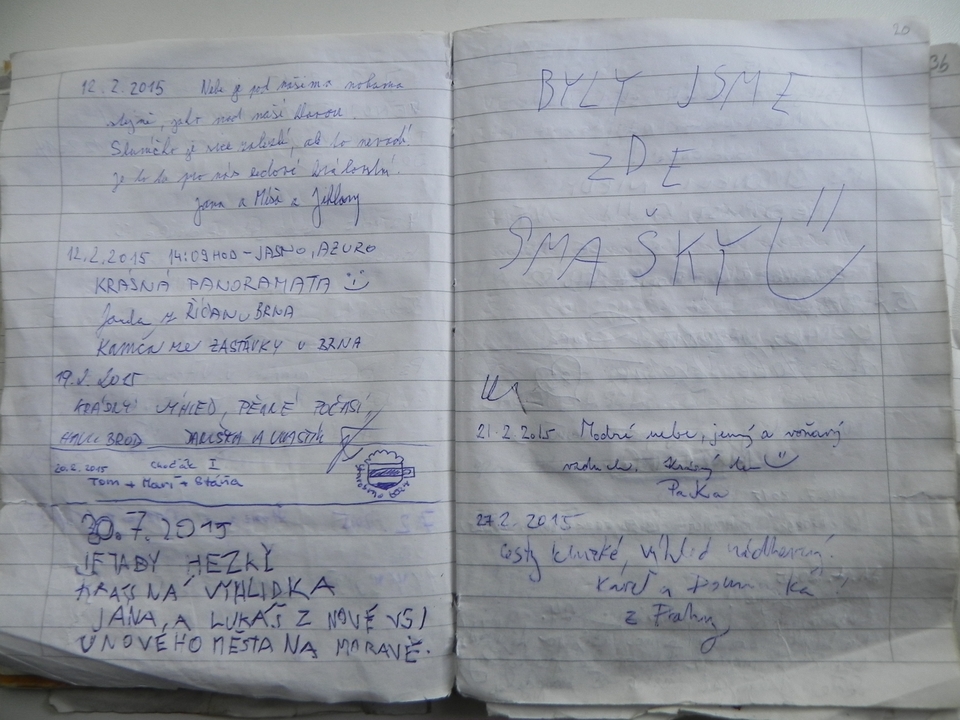 12.2.2015 Nebe je pod našima nohama
stejné, jako nad naší hlavou.
Sluníčko je sice zalezlé, ale to nevadí.
je to tu pro nás ledové království.
Jana a Míša a Jihlavy
12.2.2015 14:09 HOD - JASNO, AZURO
KRÁSNÁ PANORAMATA
Jarda z ŘÍČAN U BRNA
Kamča ze ZASTÁVKY U BRNA
19.2.2015
KRÁSNÝ VÝHLED, PĚKNÉ POČASÍ,
HAVL. BROD DANUŠKA A VLASTÍK
20.2.2015 Choťák I
Tom + Mari + Stáňa
30.7.2015
JE TADY HEZKY
KRÁSNÁ VYHLÍDKA
JANA, A LUKÁŠ Z NOVÉ VSI
U NOVÉHO MĚSTA NA MORAVĚ.
20
36
BYLY JSME
ZDE
SMAŠKY
21.2.2015 Modré nebe, jemný a voňavý
vzduch. Krásný den
Pa Ka
27.2.2015
Cesty kluzké výhled nádherný.
Karel a
z Prahy